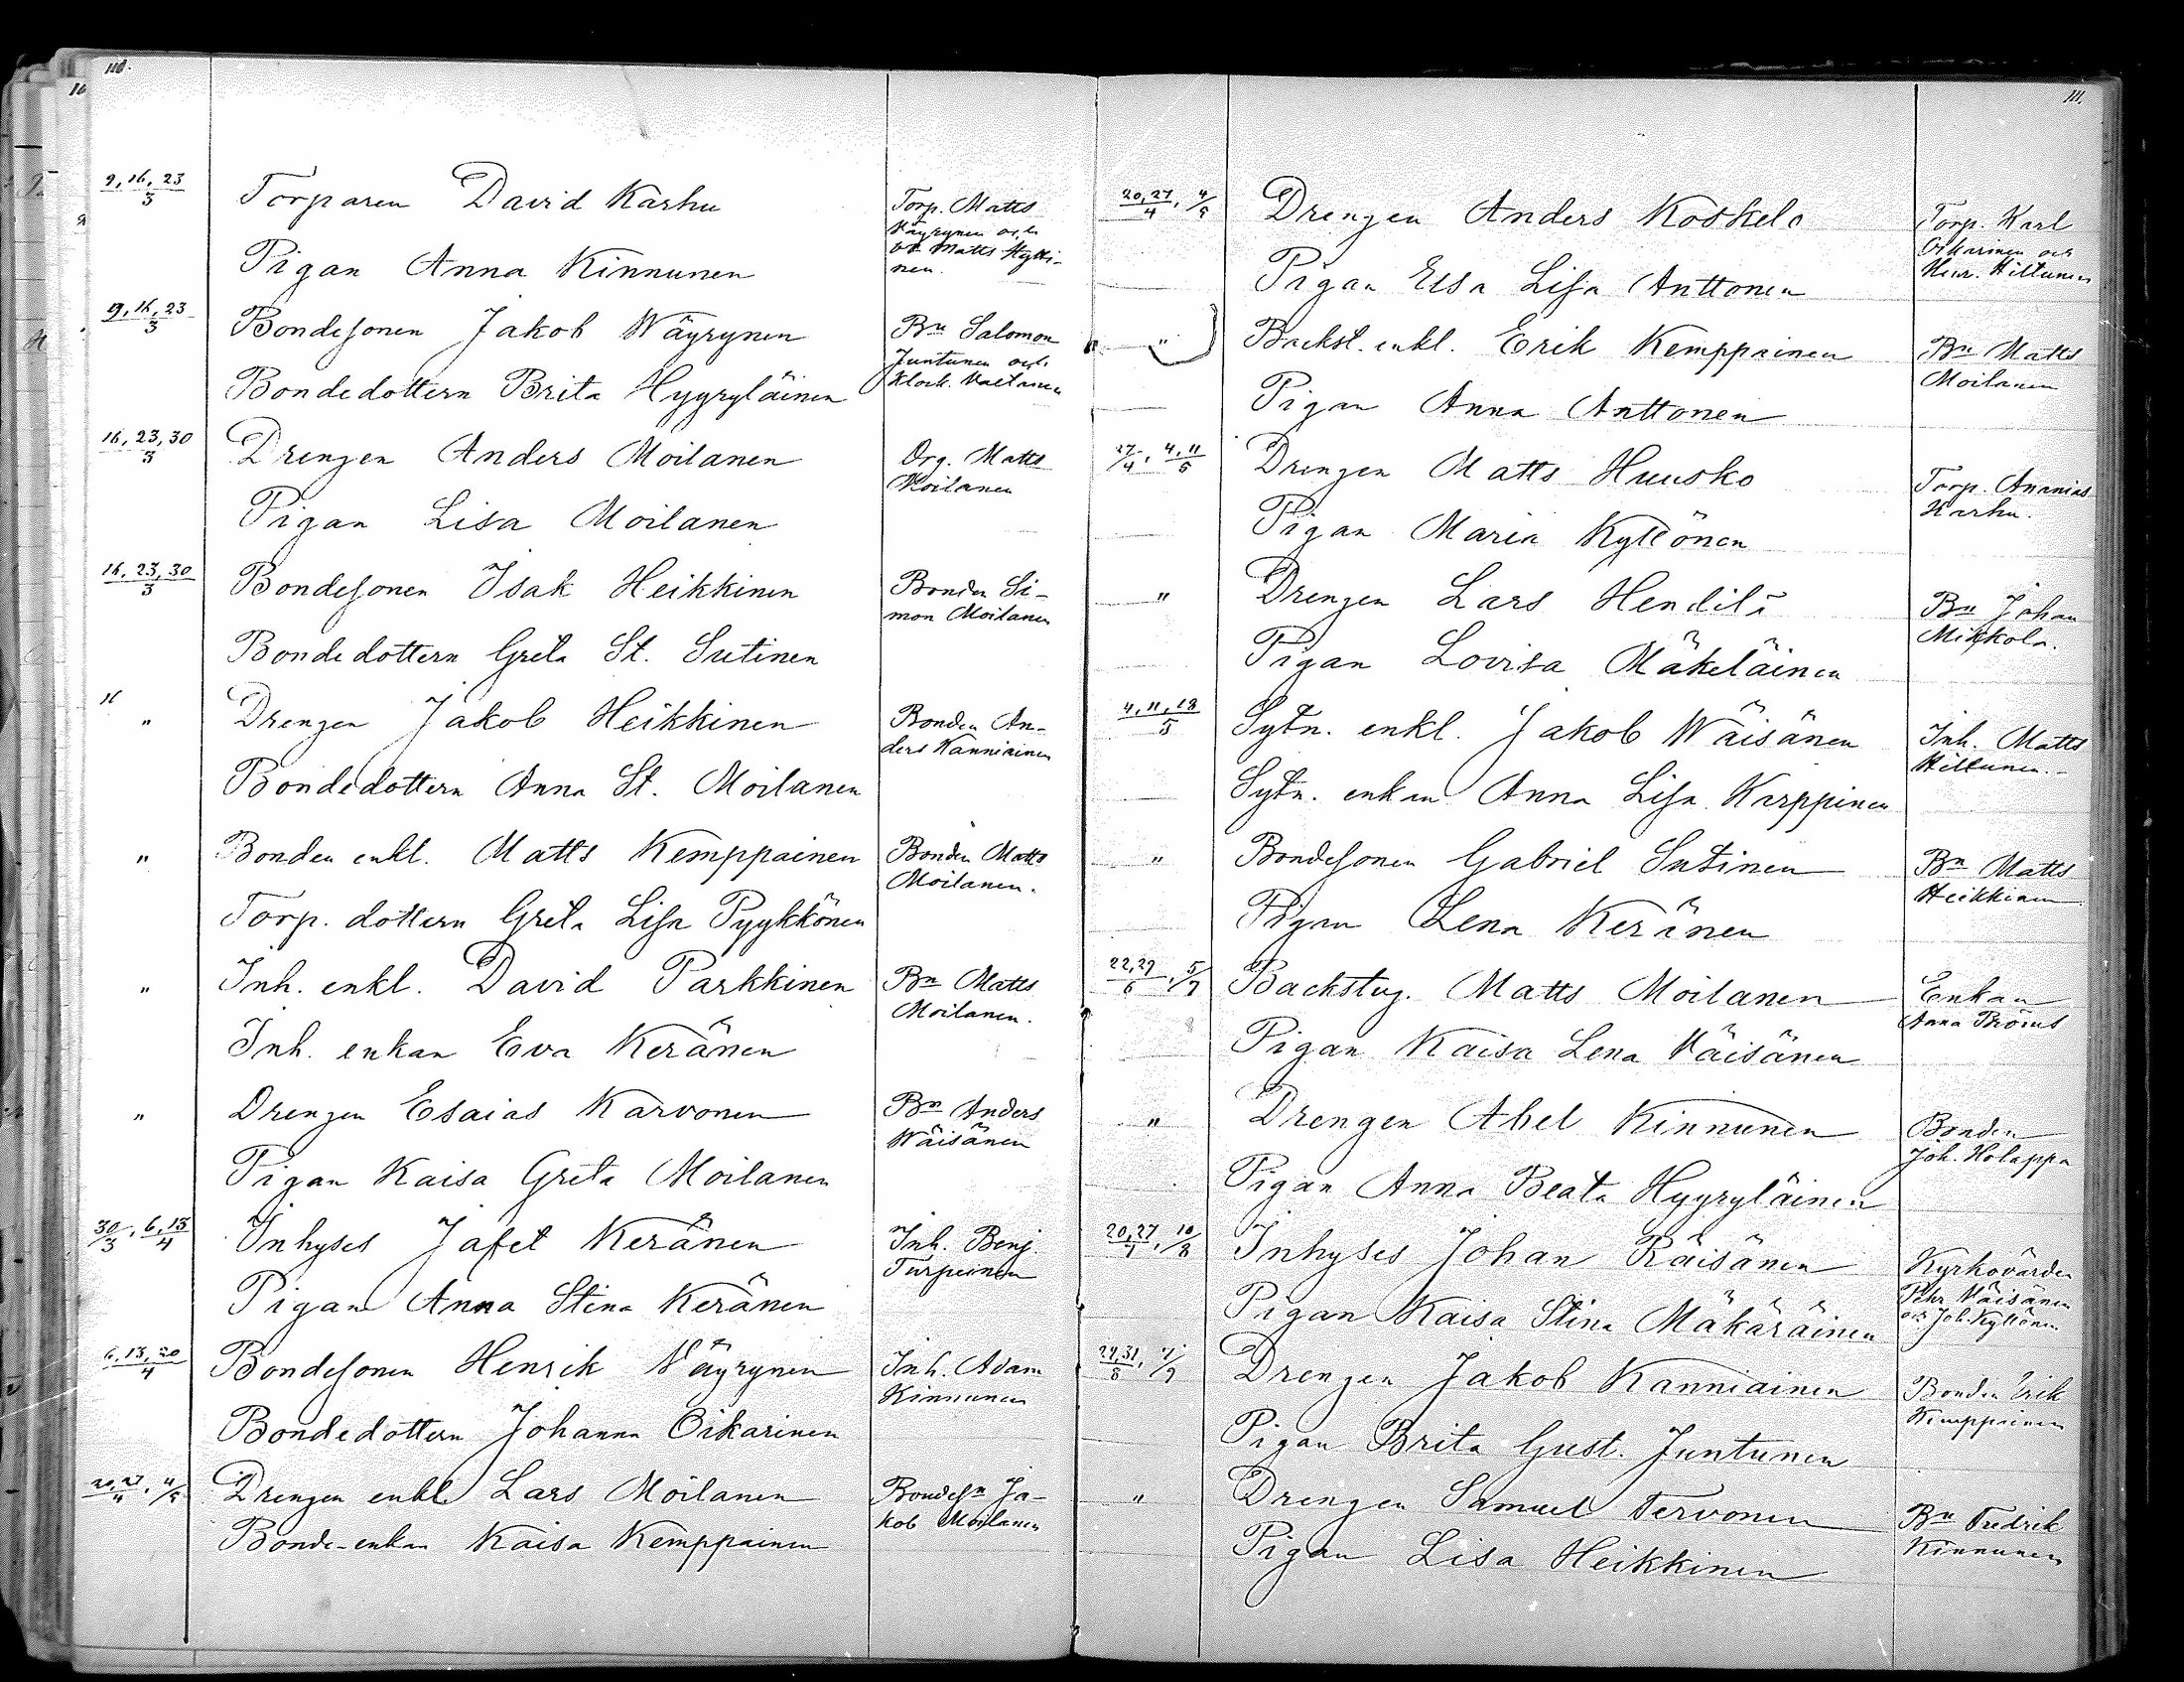 110.
9, 16, 23/3 Torparen David Karhu Torp. Matts
Väyrynen och
Matts Hytti-
nen.
Pigan Anna Kinnunen
9, 16, 23/3 Bondesonen Jakob Wäyrynen Bn Salomon
Juntunen och
Klock.
Bondedottern Brita Hyyryläinen
16, 23, 30/3 Drengen Anders Moilanen Drg. Matts
Moilanen
Pigan Lisa Moilanen
16, 23, 30/3 Bondesonen Isak Heikkinen Bonden Si-
mon Moilanen
Bondedottern Greta St. Sutinen
" Drengen Jakob Heikkinen Bonden An-
ders Kanniainen
Bondedottern Anna St. Moilanen
" Bonden enkl. Matts Kemppainen Bonden Matts
Moilanen.
Torp. dottern Greta Lisa Pyykkönen
" Inh. enkl. David Parkkinen Bn Matts
Moilanen.
Inh. enkan Eva Keränen
" Drengen Esaias Karvonen Bn Anders
Wäisänen
Pigan Kaisa Greta Moilanen
30/3, 6, 13/4 Inhyses Jafet Keränen Inh. Benj.
Turpeinen
Pigan Anna Stina Keränen
6, 13, 20/4 Bondesonen Henrik Väyrynen Inh. Adam
Kinnunen
Bondedottern Johanna Oikarinen
20, 27/4, 4/5 Drengen enkl. Lars Moilanen Bondesn Ja-
kob Moilanen
Bonde-enkan Kaisa Kemppainen
111.
20, 27/4, 4/5 Drengen Anders Koskelo Torp. Karl
Oikarinen och
Henr. Hiltunen
Pigan Elsa Lisa Anttonen
" Backst. enkl. Erik Kemppainen Bn Matts
Moilanen
Pigan Anna Anttonen
27/4, 4, 11/5 Drengen Matts Huusko Torp. Ananias
Karhu.
Pigan Maria Kyllönen
" Drengen Lars Hendilä Bn Johan
Mikkola.
Pigan Lovisa Mäkeläinen
4, 11, 18/5 Sytn. enkl. Jakob Wäisänen Inh. Matts
Hiltunen.-
Sytn. enkan Anna Lisa Karppinen
" Bondesonen Gabriel Sutinen Bn Matts
Heikkinen
Pigan Lena Keränen
22, 29/6, 5/7 Backstug. Matts Moilanen Enkan
Anna
Pigan Kaisa Lena Väisänen
" Drengen Abel Kinnunen Bonden
Joh. Holappa
Pigan Anna Beata Hyyryläinen
20, 27/7, 10/8 Inhyses Johan Räisänen Kyrkovärden
Pehr Väisänen
och Joh. Kyllönen
Pigan Kaisa Stina Mäkäräinen
24, 31/8, 7/9 Drengen Jakob Kanniainen Bonden Erik
Kemppainen
Pigan Brita Gust. Juntunen
" Drengen Samuel Tervonen Bn Fredrik
Kinnunen
Pigan Lisa Heikkinen